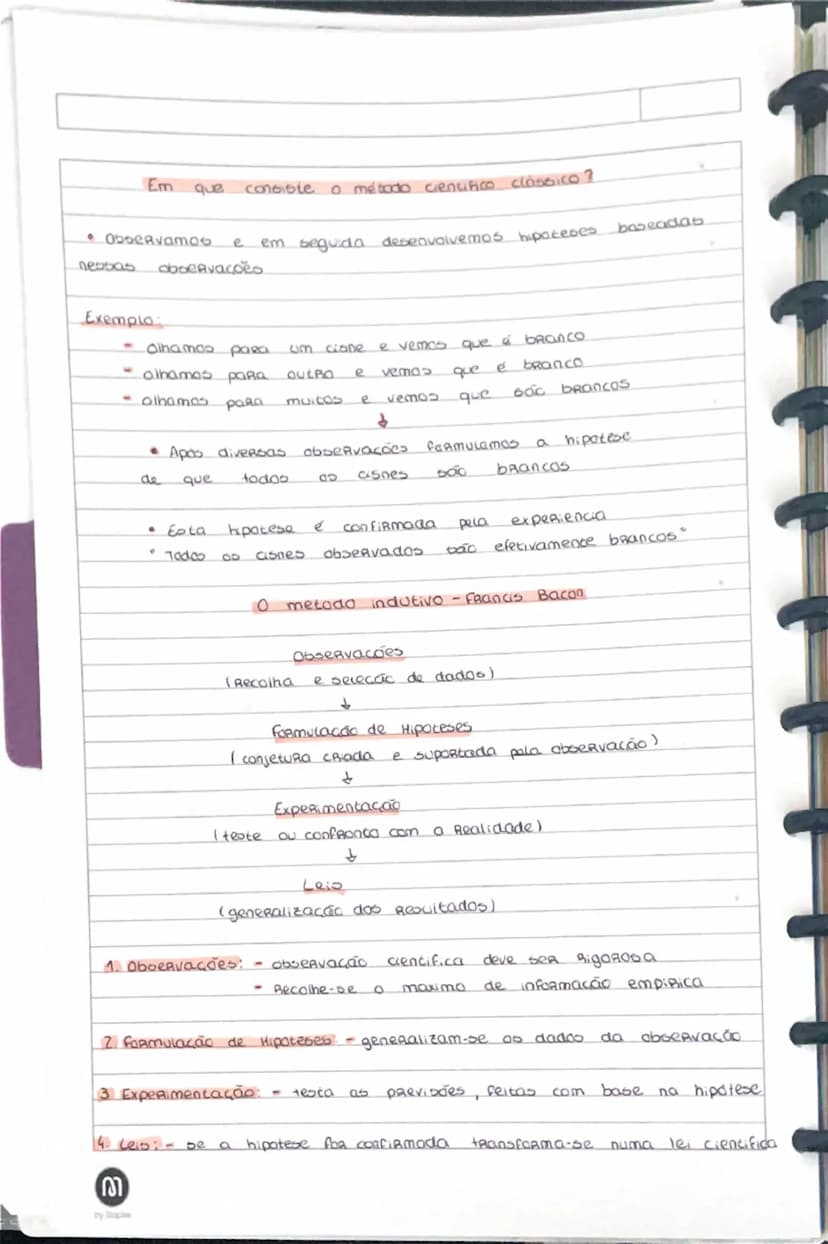 Em que consiste o método cientifico clássico?
• Observamos e em seguida desenvolvemos hipoteses baseadas
nessas observações
Exemplo:
- Olhamos para um cisne e vemos que é branco
- olhamos para outro e vemos que é branco
- olhamos para muitos e vemos que são brancos
↓
• Após diversas observações formulamos a hipotese
de que todos os cisnes são brancos
• Esta hipotese é confirmada pela experiencia
" Todos os cisnes observados são efetivamente brancos"
O metodo indutivo - Francis Bacon
Observações
(Recolha e seleção de dados)
↓
Formulação de Hipoteses
(conjetura criada e suportada pela observação)
↓
Experimentação
(teste ou confronto com a realidade)
↓
Leis
(generalização dos resultados)
1. Observações: - observação cientifica deve ser rigorosa
- Recolhe-se o maximo de informação empirica
2 Formulação de Hipoteses: - generalizam-se os dados da observação
3 Experimentação: - testa as previsões, feitas com base na hipótese
4. Leis: - se a hipotese for confirmada transforma-se numa lei cientifida
by Staples